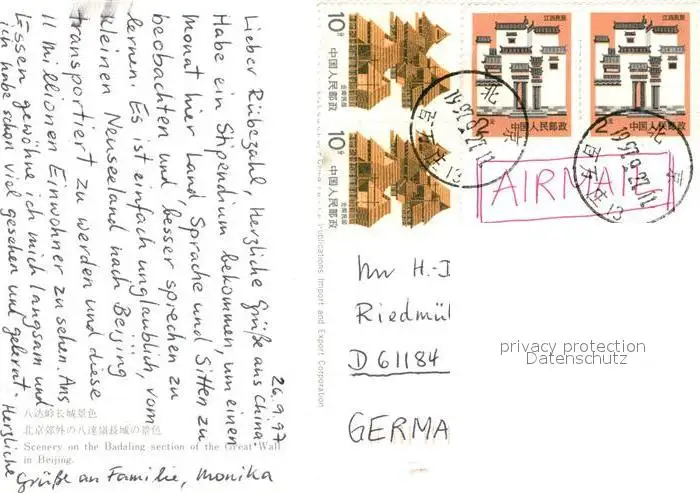 26.9.97
Lieber Rübezahl, Herzliche Grüße aus China.
Habe ein Stipendium bekommen, um einen
Monat hier Land Sprache und Sitten zu
beobachten und besser sprechen zu
lernen. Es ist einfach unglaublich, vom
kleinen Neuseeland nach Beijing
transportiert zu werden und diese
11 Millionen Einwohner zu sehen. Ans
Essen gewöhne ich mich langsam und
ich habe schon viel gesehen und gelernt. Herzliche
Grüße an Familie, Monika
八达岭长城景色
北京郊外の八達嶺長城の景色
Scenery on the Badaling section of the Great Wall
in Beijing.
Publications Import and Export Corporation
10分
云南民居
中国人民邮政
10分
云南民居
中国人民邮政
江西民居
2元
中国人民邮政
江西民居
2元
中国人民邮政
北京
北京
AIRMAIL
Hn H.-J
Riedmül
D 61184
GERMA
privacy protection
Datenschutz